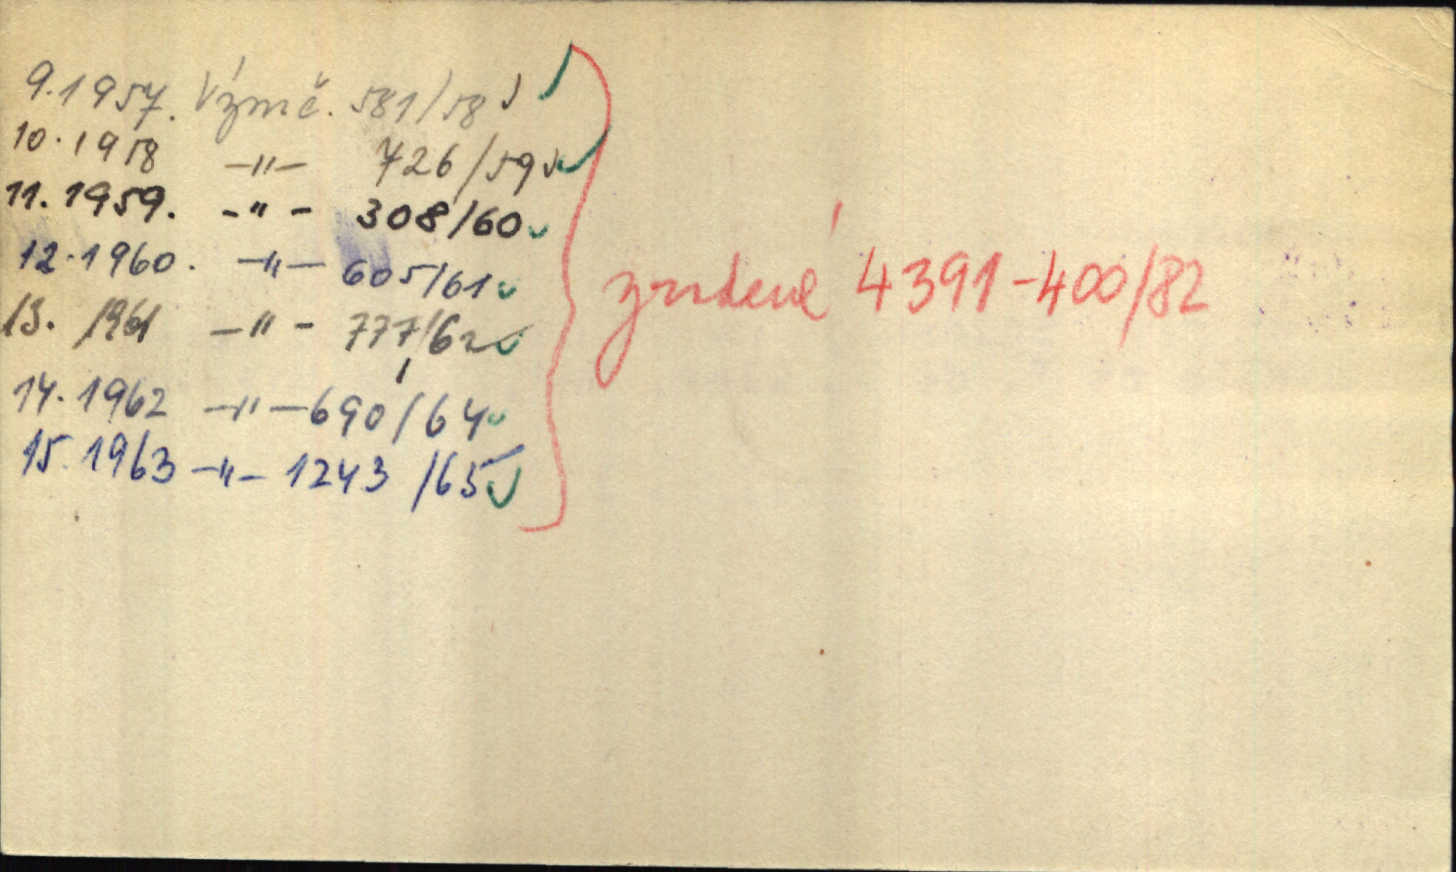 9.1957. Vým č. 581/58
10.1958 -"- 726/59
11.1959. -"- 308/60
12.1960. -"- 605/61
13. 1961 -"- 777/62
14.1962 -"- 690/64
15.1963 -"- 1243/65
zradené 4391-400/82